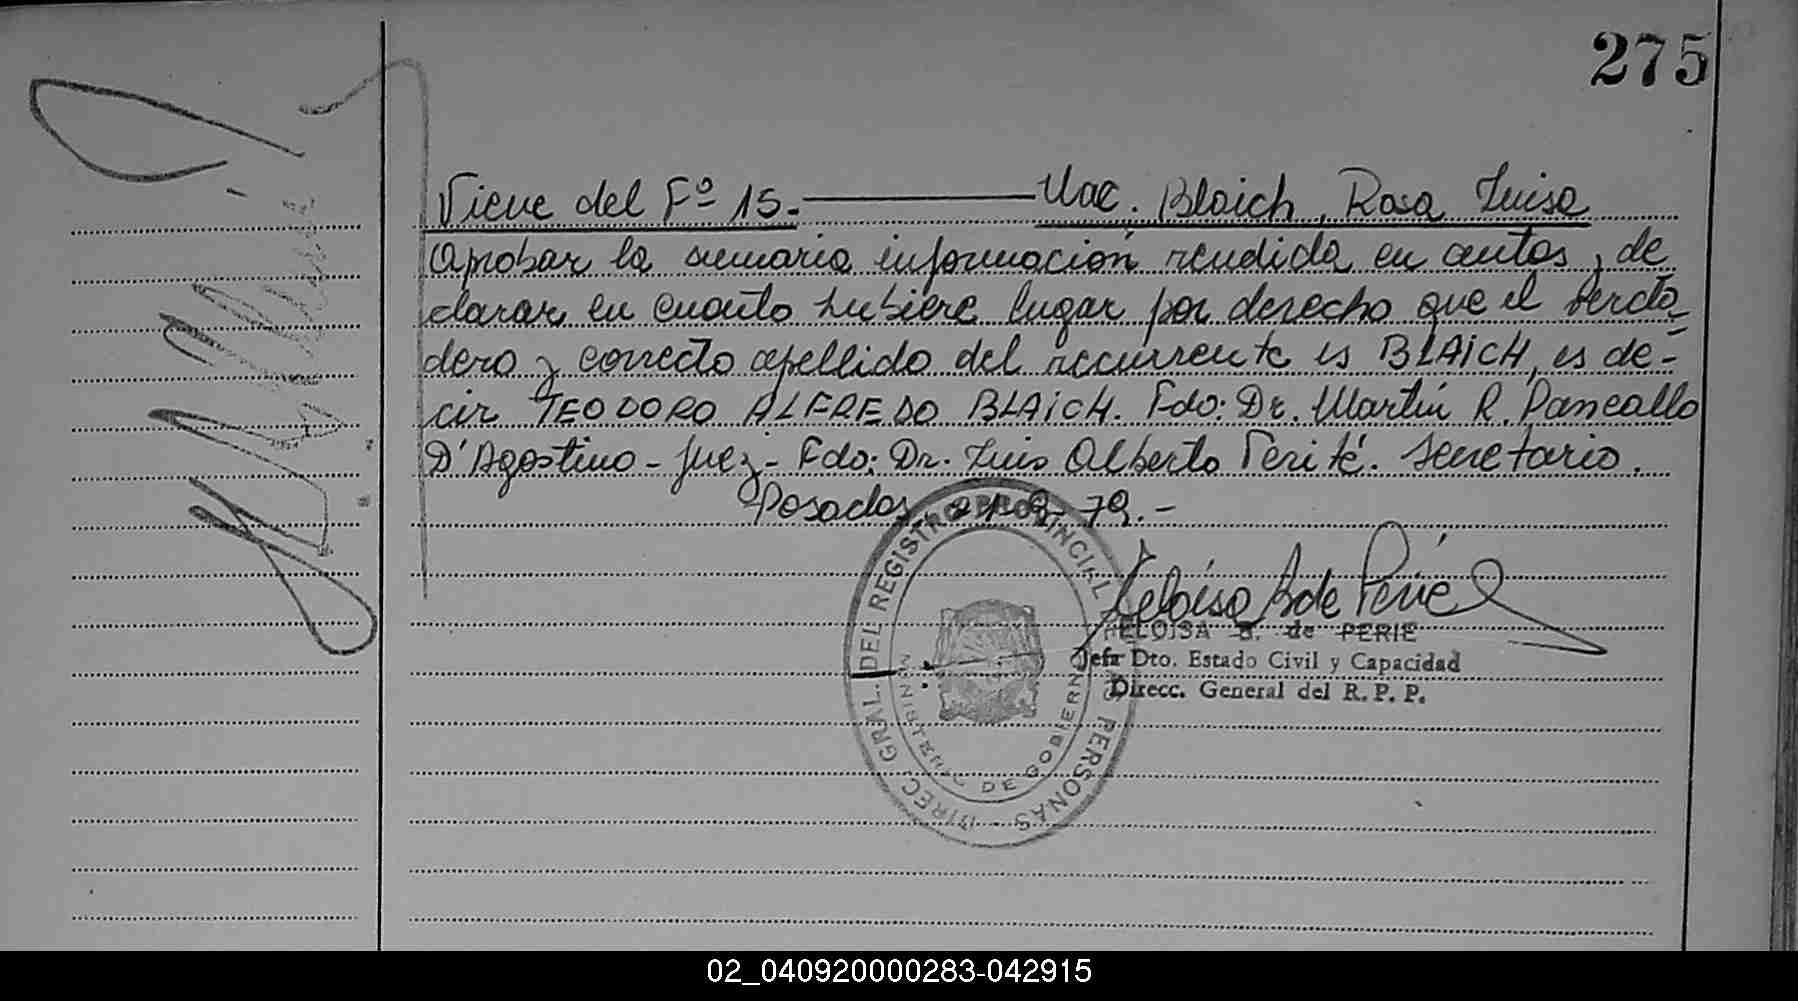 275
Viene del Fº 15.- Nac. Blaich, Rosa Luisa
Aprobar la sumaria información rendida en autos, de
clarar en cuanto hubiere lugar por derecho que el verda-
dero y correcto apellido del recurrente es BLAICH, es de-
cir TEODORO ALFREDO BLAICH. Fdo: Dr. Martín R.
D'Agostino - Juez - Fdo: Dr. Luis Alberto Perié. Secretario.
Posadas 79.-
DIREC. GRAL. DEL REGISTRO PROVINCIAL PERSONAS
MINISTERIO DE GOBIERNO
Heloisa de Perié
HELOISA B. de PERIE
Jefa Dto. Estado Civil y Capacidad
Direcc. General del R. P. P.
02_040920000283-042915